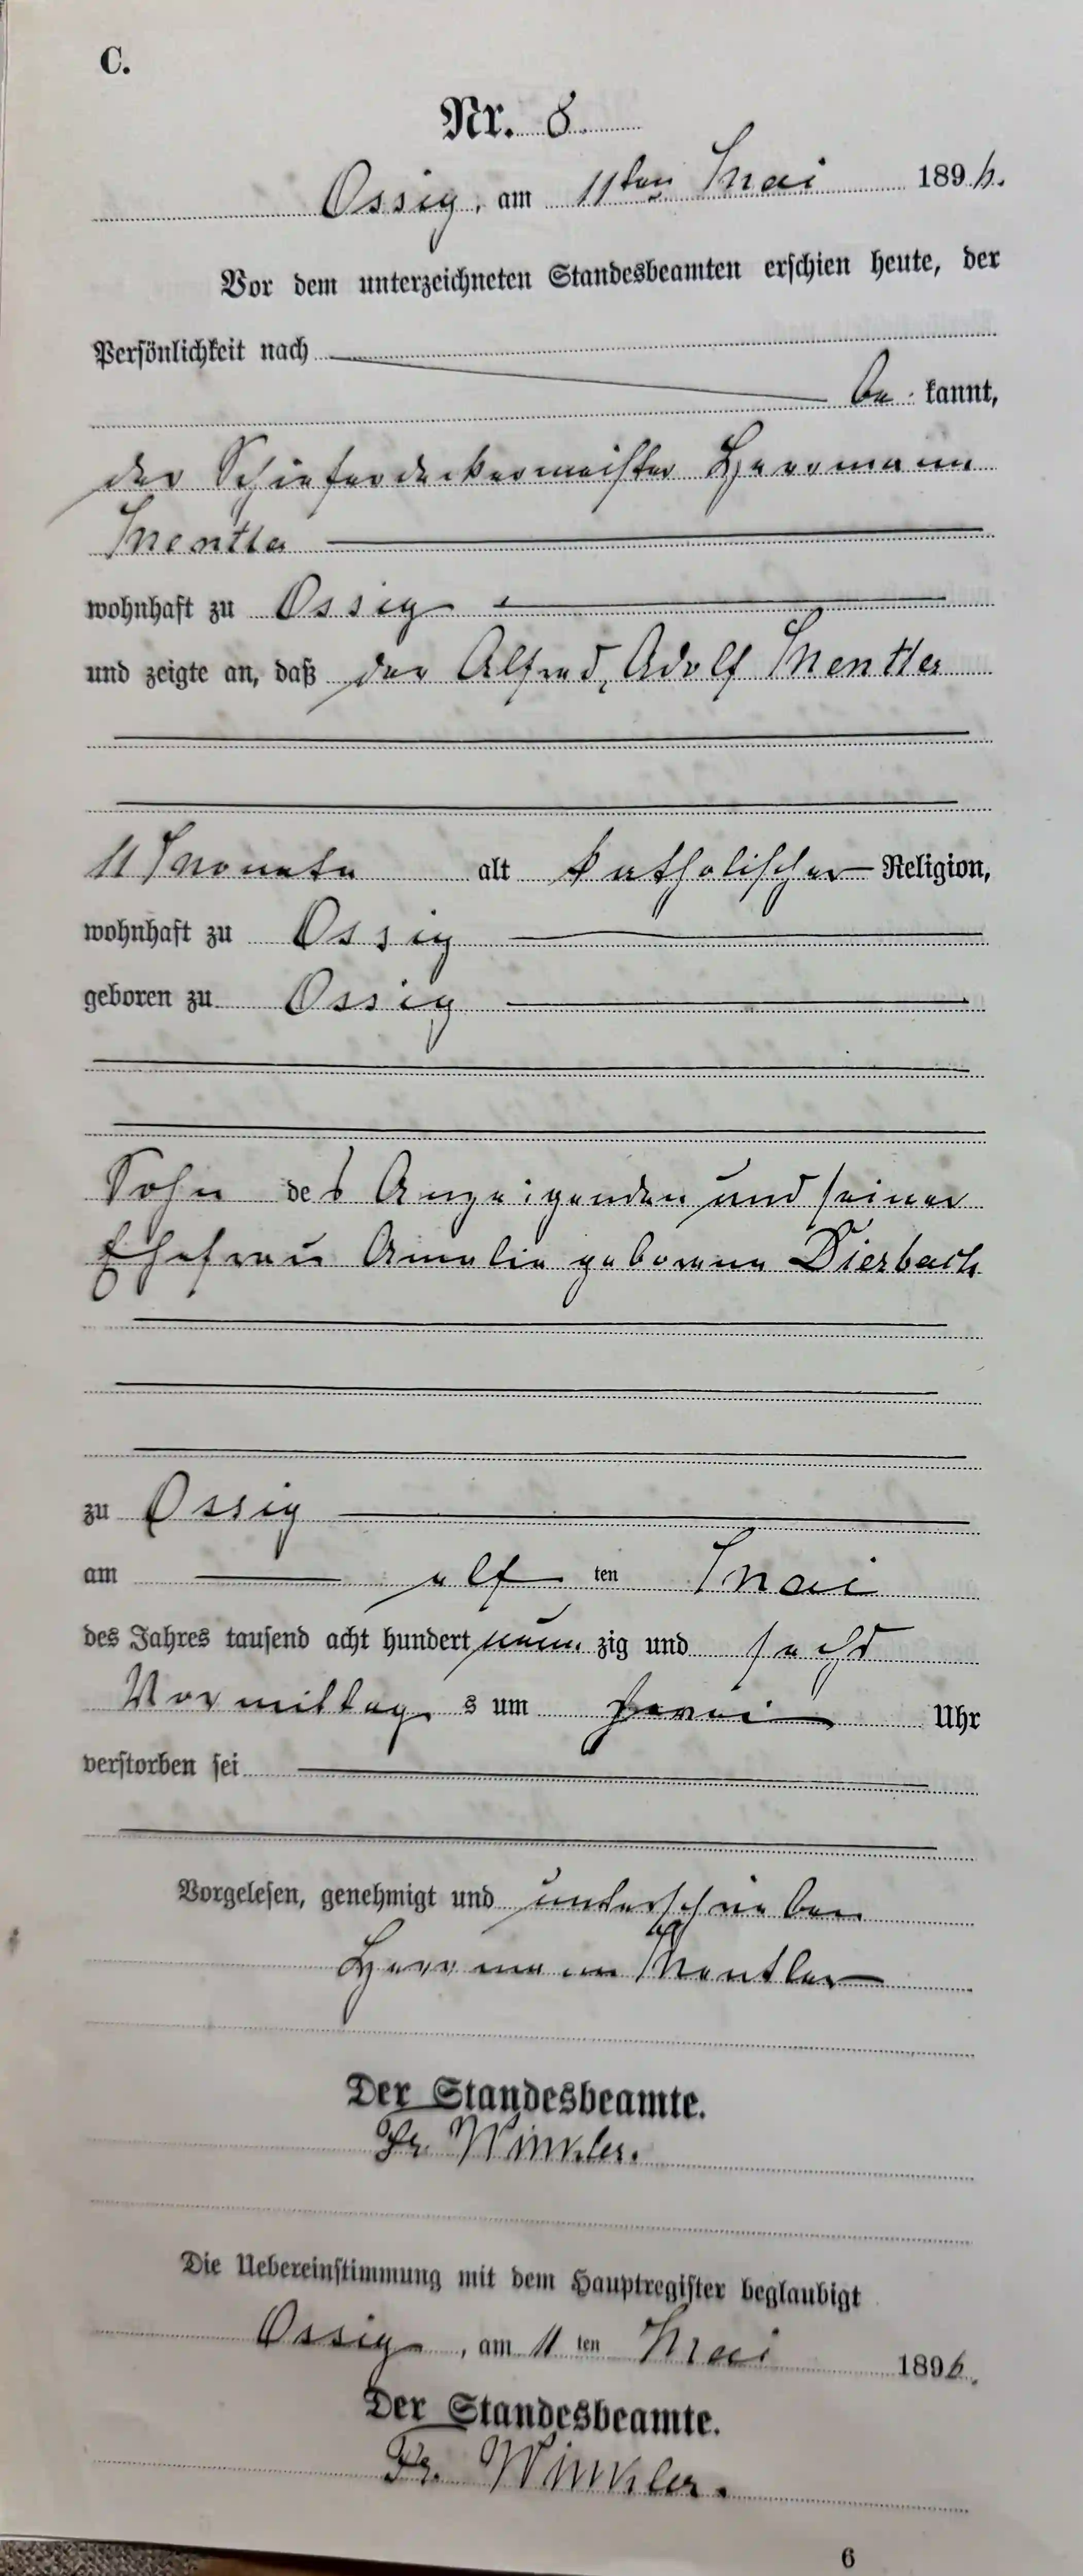 C.
Nr. 8.
Ossig, am 11ten Mai 1896.
Vor dem unterzeichneten Standesbeamten erschien heute, der
Persönlichkeit nach
be kannt,
der Schieferdeckermeister Herrmann
Mentler
wohnhaft zu Ossig
und zeigte an, daß der Alfred, Adolf Mentler
11 Monate alt katholischer Religion,
wohnhaft zu Ossig
geboren zu Ossig
Sohn des Anzeigenden und seiner
Ehefrau Amalie geborene Dierbach
zu Ossig
am elf ten Mai
des Jahres tausend acht hundert neun zig und sechs
Vormittag s um zwei Uhr
verstorben sei
Vorgelesen, genehmigt und unterschrieben
Herrmann Mentler
Der Standesbeamte.
Fr. Winkler.
Die Uebereinstimmung mit dem Hauptregister beglaubigt
Ossig, am 11 ten Mai 1896.
Der Standesbeamte.
Fr. Winkler.
6